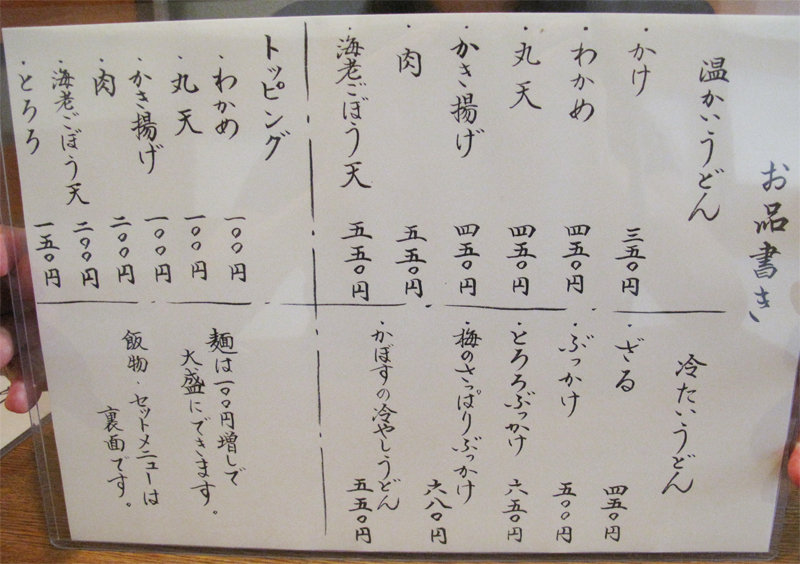 お品書き
温かいうどん
・かけ 三五〇円
・わかめ 四五〇円
・丸天 四五〇円
・かき揚げ 四五〇円
・肉 五五〇円
・海老ごぼう天 五五〇円
冷たいうどん
・ざる 四五〇円
・ぶっかけ 五〇〇円
・とろろぶっかけ 六五〇円
・梅のさっぱりぶっかけ 六八〇円
・かぼすの冷やしうどん 五五〇円
トッピング
・わかめ 一〇〇円
・丸天 一〇〇円
・かき揚げ 一〇〇円
・肉 二〇〇円
・海老ごぼう天 二〇〇円
・とろろ 一五〇円
麺は一〇〇円増しで
大盛にできます。
飯物・セットメニューは
裏面です。